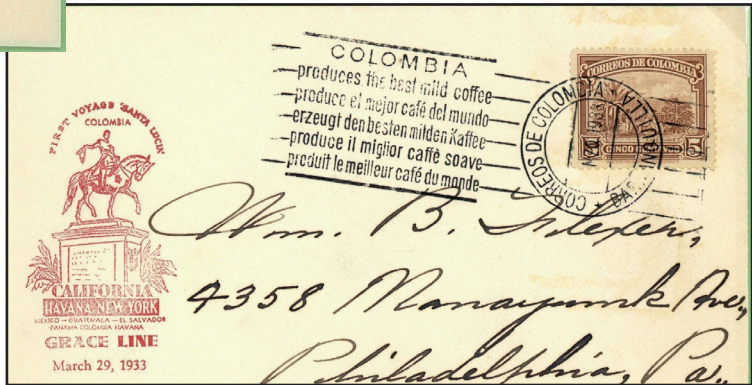 FIRST VOYAGE "SANTA LUCIA"
COLOMBIA
CALIFORNIA
HAVANA-NEW YORK
MEXICO – GUATEMALA – EL SALVADOR
PANAMA COLOMBIA HAVANA
GRACE LINE
March 29, 1933
COLOMBIA
produces the best mild coffee
produce el mejor café del mundo
erzeugt den besten milden Kaffee
produce il miglior caffè soave
produit le meilleur café du monde
CORREOS DE COLOMBIA
1933
CORREOS DE COLOMBIA
5
CINCO CENTAVOS
5
Wm. B.
4358 Manayunk Ave.,
Philadelphia, Pa.,